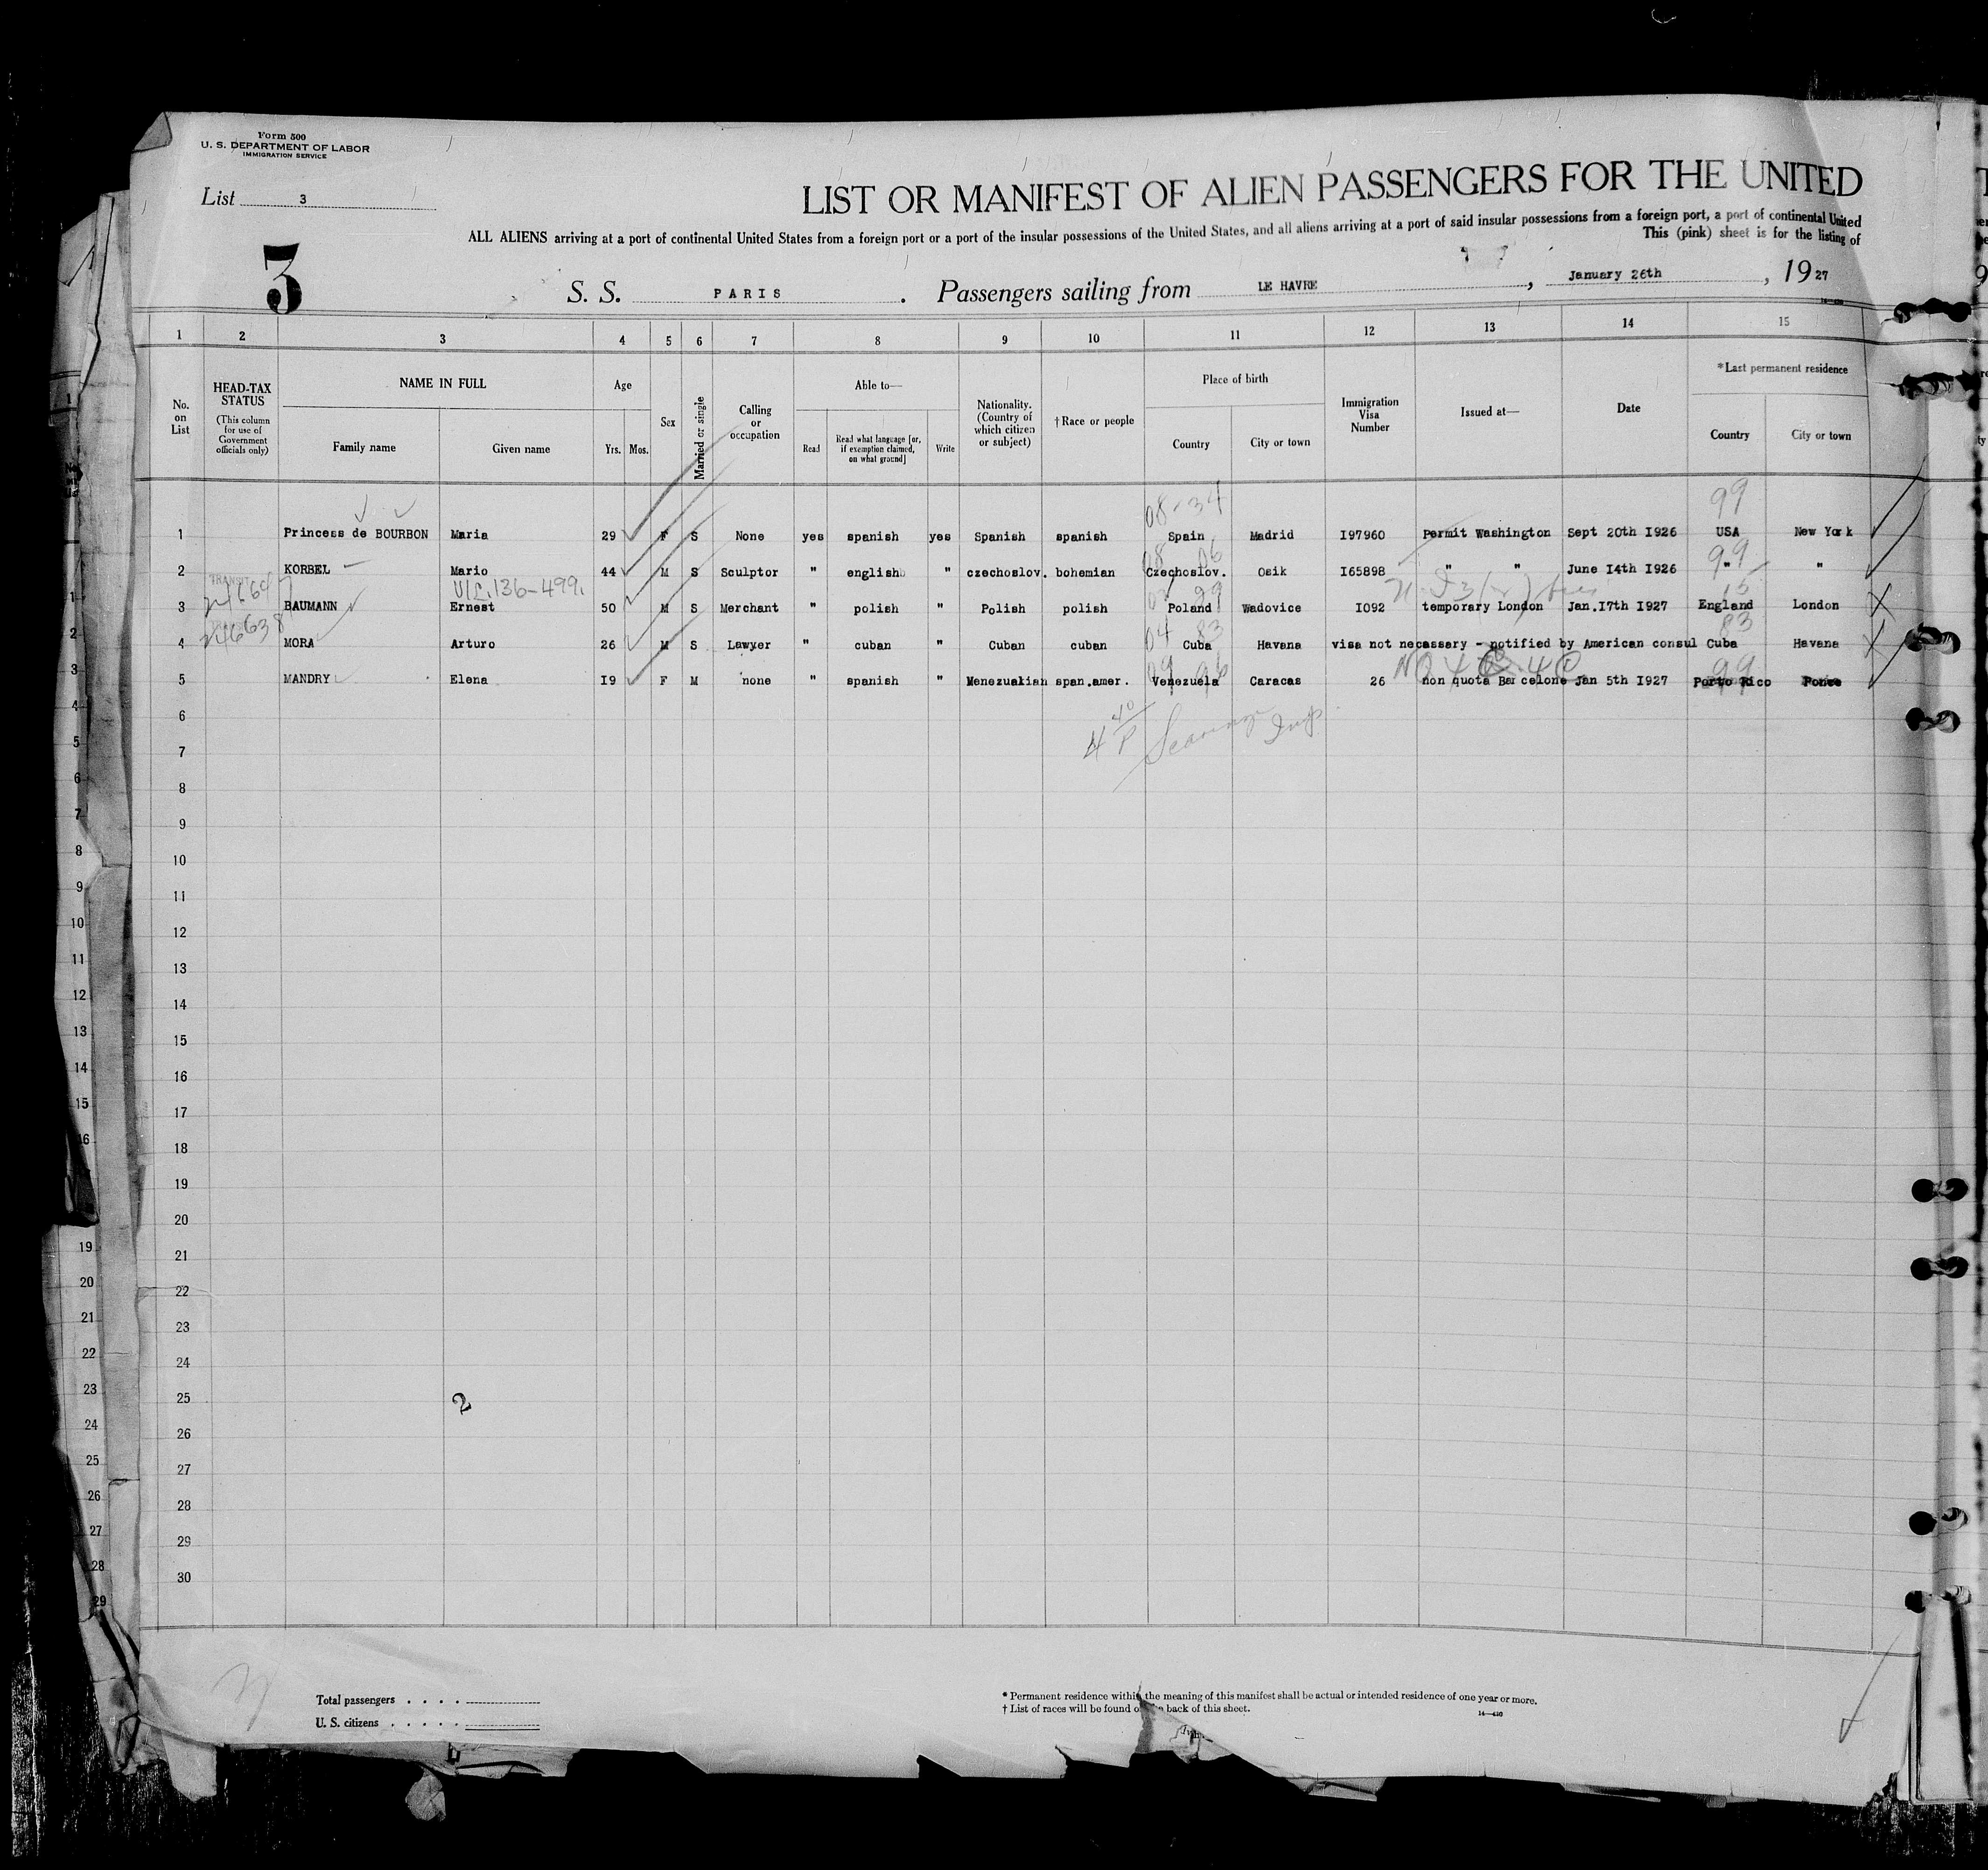 Form 500
U. S. DEPARTMENT OF LABOR
IMMIGRATION SERVICE
List 3
LIST OR MANIFEST OF ALIEN PASSENGERS FOR THE UNITED
ALL ALIENS arriving at a port of continental United States from a foreign port or a port of the insular possessions of the United States, and all aliens arriving at a port of said insular possessions from a foreign port, a port of continental United
This (pink) sheet is for the listing of
3
S. S. PARIS . Passengers sailing from LE HAVRE , January 26th , 1927
1 2 3 4 5 6 7 8 9 10 11 12 13 14 15
No. on List
HEAD-TAX STATUS
(This column for use of Government officials only)
NAME IN FULL
Family name Given name
Age
Yrs. Mos.
Sex
Married or single
Calling or occupation
Able to—
Read
Read what language [or, if exemption claimed, on what ground]
Write
Nationality. (Country of which citizen or subject)
†Race or people
Place of birth
Country City or town
Immigration Visa Number
Issued at—
Date
*Last permanent residence
Country City or town
08-34 99
1 Princess de BOURBON Maria 29 F S None yes spanish yes Spanish spanish Spain Madrid I97960 Permit Washington Sept 20th I926 USA New York
08 06 99
2 KORBEL Mario 44 M S Sculptor " english " czechoslov. bohemian Czechoslov. Osik I65898 " " June I4th I926 " "
TRANSIT V/L.136-499. 99 15
3 BAUMANN Ernest 50 M S Merchant " polish " Polish polish Poland Wadovice I092 temporary London Jan.I7th I927 England London
246638 04 83 83
4 MORA Arturo 26 M S Lawyer " cuban " Cuban cuban Cuba Havana visa not necessary - notified by American consul Cuba Havana
09 96 99
5 MANDRY Elena I9 F M none " spanish " Menezuakian span.amer. Venezuela Caracas 26 non quota Barcelone Jan 5th I927 Porto Rico Ponce
6
7
8
9
10
11
12
13
14
15
16
17
18
19
20
21
22
23
24
25 2
26
27
28
29
30
Total passengers . . . .
U. S. citizens . . . . .
* Permanent residence within the meaning of this manifest shall be actual or intended residence of one year or more.
† List of races will be found back of this sheet.